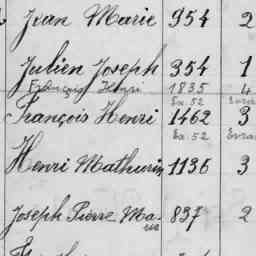 Jean Marie 954 2
Julien Joseph 354 1
François Henri 1835 4
Ex. 52
François Henri 1462 3
Ex. 52
Henri Mathurin 1136 3
Joseph Pierre Ma 837 2